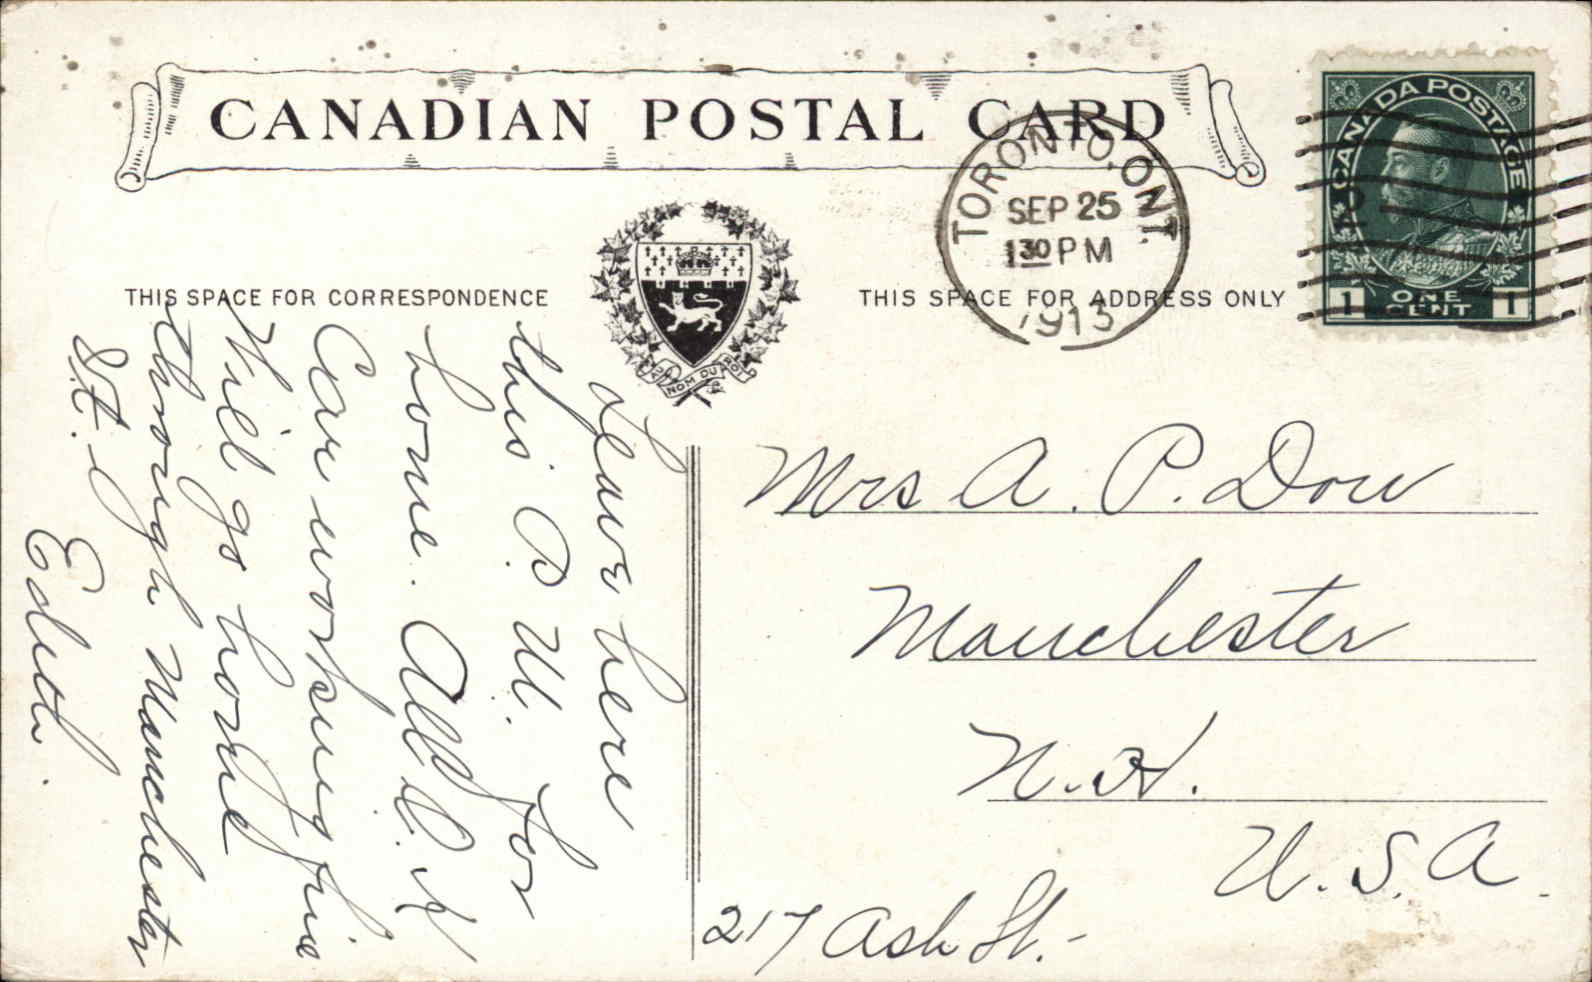 CANADIAN POSTAL CARD
THIS SPACE FOR CORRESPONDENCE
THIS SPACE FOR ADDRESS ONLY
TORONTO, ONT.
SEP 25
1 30 PM
1913
CANADA POSTAGE
1 ONE CENT 1
NOM DU ROI
Leave here
this P. M. for
home. All O. K
Car working fine
Will go home
through Manchester
St.
Edith.
Mrs A. P. Dow
Manchester
N. H.
U. S. A.
217 Ash St.-